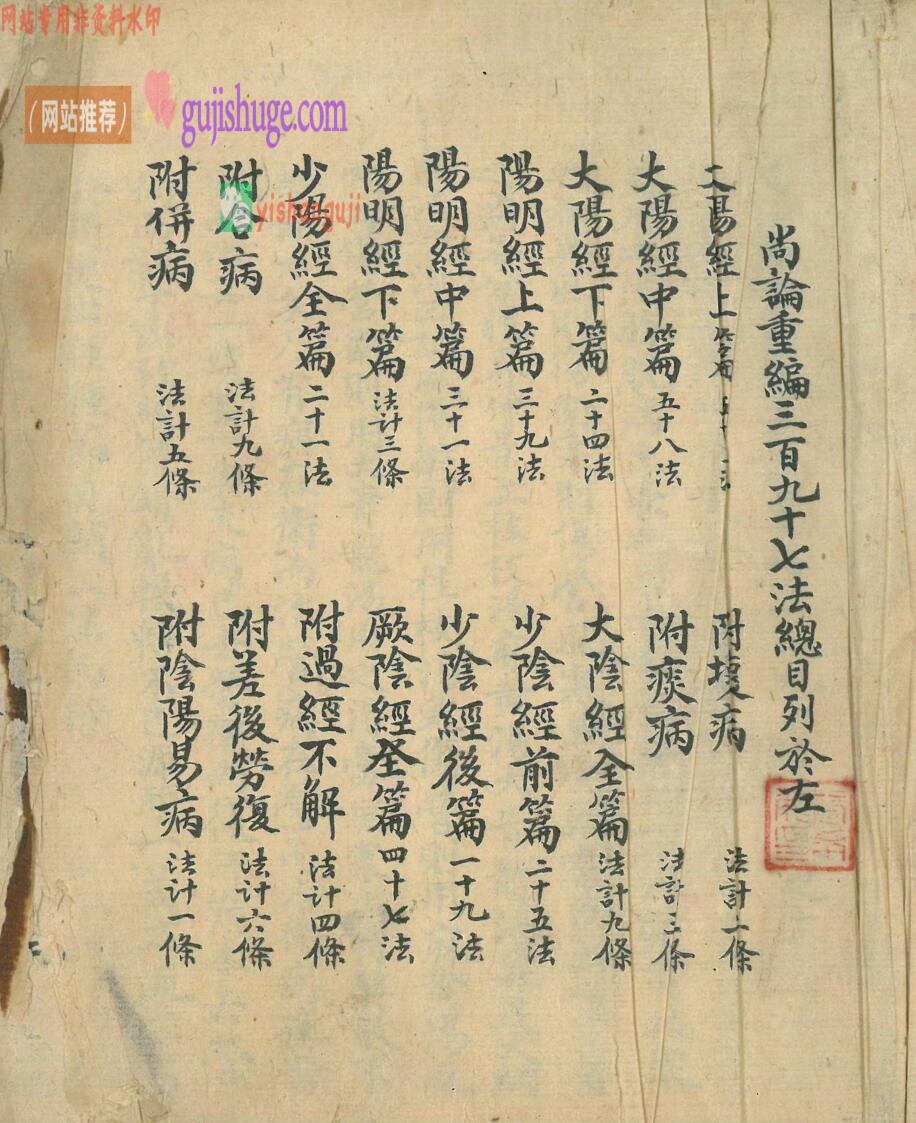 尚論重編三百九十七法總目列於左
大陽經上篇
大陽經中篇 五十八法
大陽經下篇 二十四法
陽明經上篇 三十九法
陽明經中篇 三十一法
陽明經下篇 法計三條
少陽經全篇 二十一法
附合病 法計九條
附併病 法計五條
附壞病 法計二條
附痰病 法計三條
大陰經全篇 法計九條
少陰經前篇 二十五法
少陰經後篇 一十九法
厥陰經全篇 四十七法
附過經不解 法計四條
附差後勞復 法計六條
附陰陽易病 法計一條
网站专用非资料水印
（网站推荐）
gujishuge.com